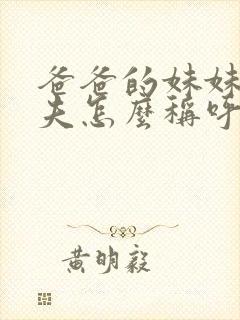 爸爸的妹妹
夫怎麼稱呼
黃明毅